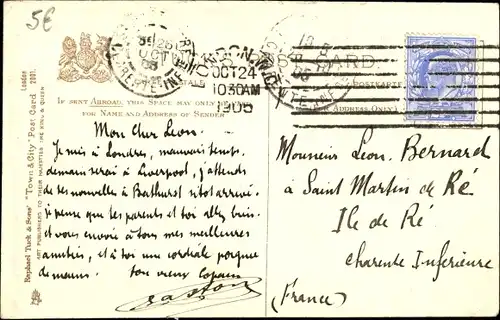 5€
LONDON. W.C
OCT 24
10 30 AM
1905
POSTCARD
IF SENT ABROAD, THIS SPACE MAY ONLY
FOR NAME AND ADDRESS OF SENDER
ADDRESS ONLY
Raphael Tuck & Sons' "Town & City" Post Card London 2001.
ART PUBLISHERS TO THEIR MAJESTIES THE KING & QUEEN
Mon cher Leon.
Je suis à Londres, mauvais temps
demain serai à Liverpool, j'attends
de tes nouvelles à Bathurst sitot arrivé.
je pense que tes parents et toi allez bien.
et vous envoie à tous mes meilleures
amitiés, et à toi une cordiale poignee
de mains. ton vieux copain
Gaston
Monsieur Leon. Bernard
à Saint Martin de Ré
Ile de Ré
Charente Inferieure
(France)